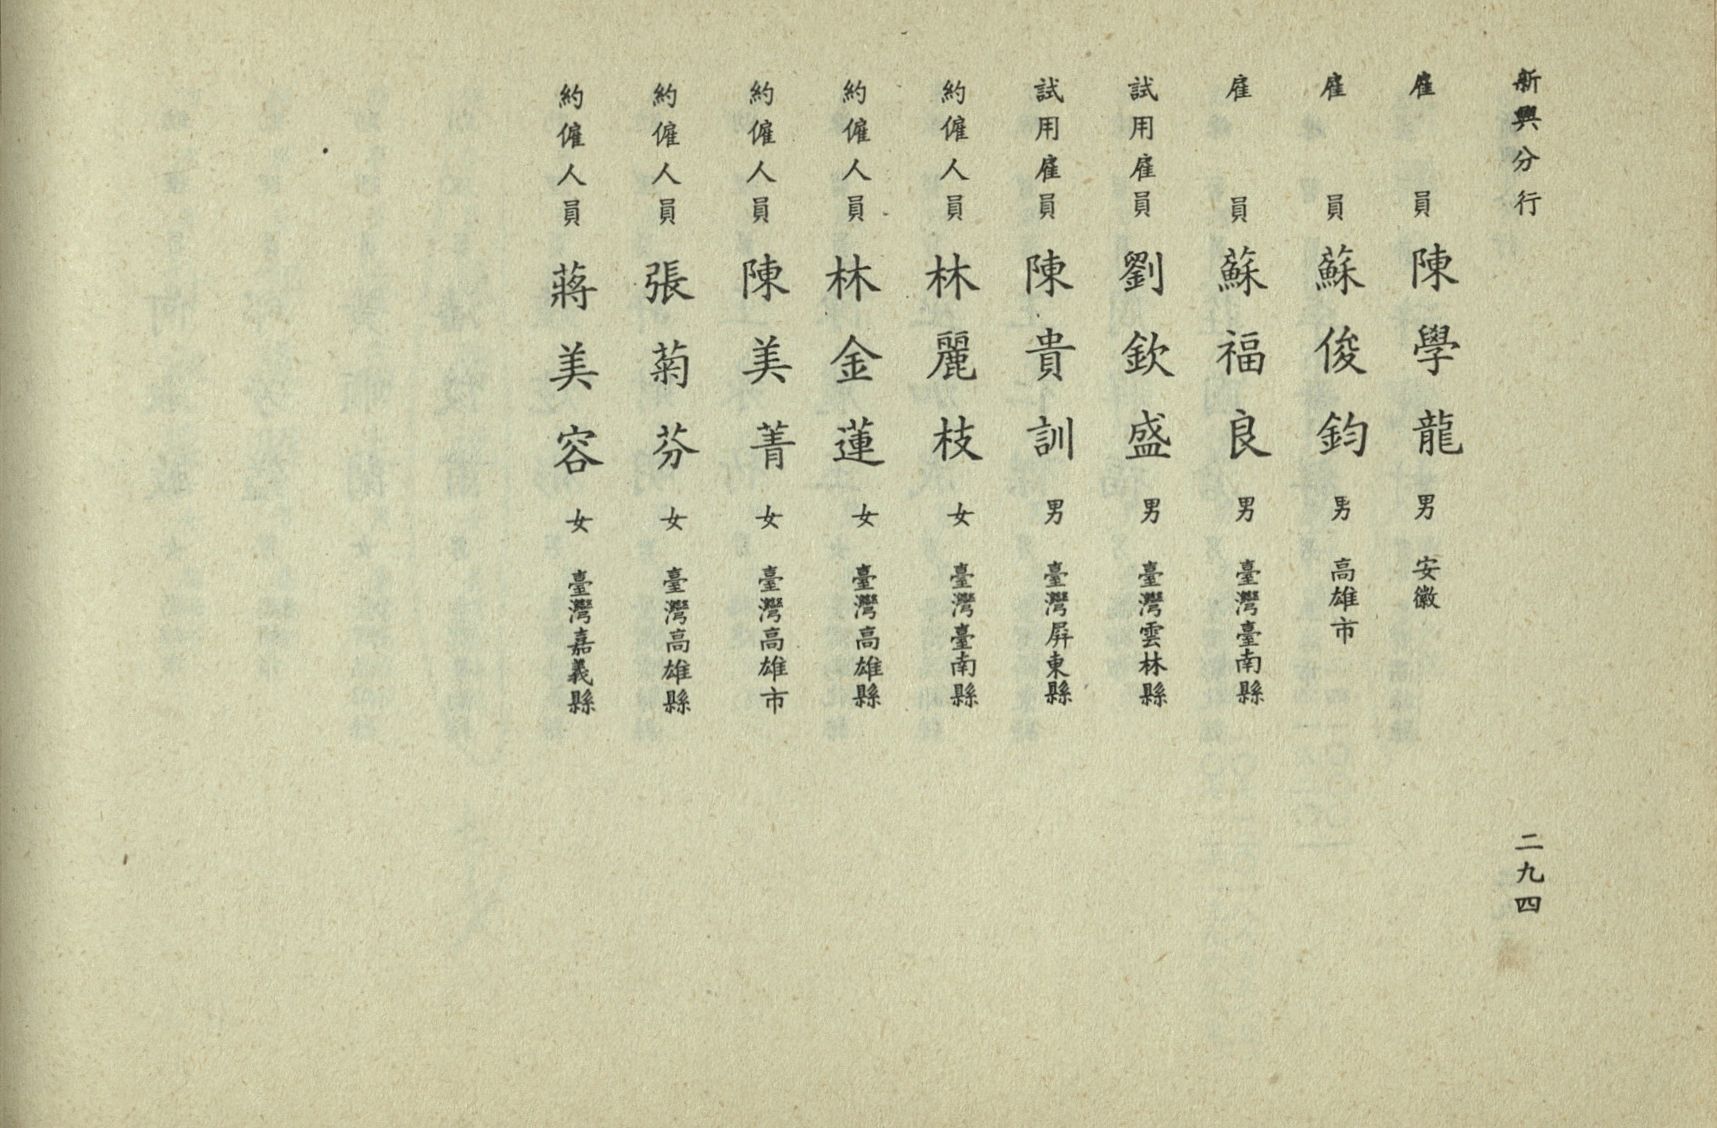 新興分行
雇員 陳學龍 男 安徽
雇員 蘇俊鈞 男 高雄市
雇員 蘇福良 男 臺灣臺南縣
試用雇員 劉欽盛 男 臺灣雲林縣
試用雇員 陳貴訓 男 臺灣屏東縣
約僱人員 林麗枝 女 臺灣臺南縣
約僱人員 林金蓮 女 臺灣高雄縣
約僱人員 陳美菁 女 臺灣高雄市
約僱人員 張菊芬 女 臺灣高雄縣
約僱人員 蔣美容 女 臺灣嘉義縣
二九四